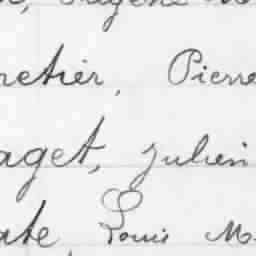 netier, Pierre
aget, Julien
ate, Louis M.